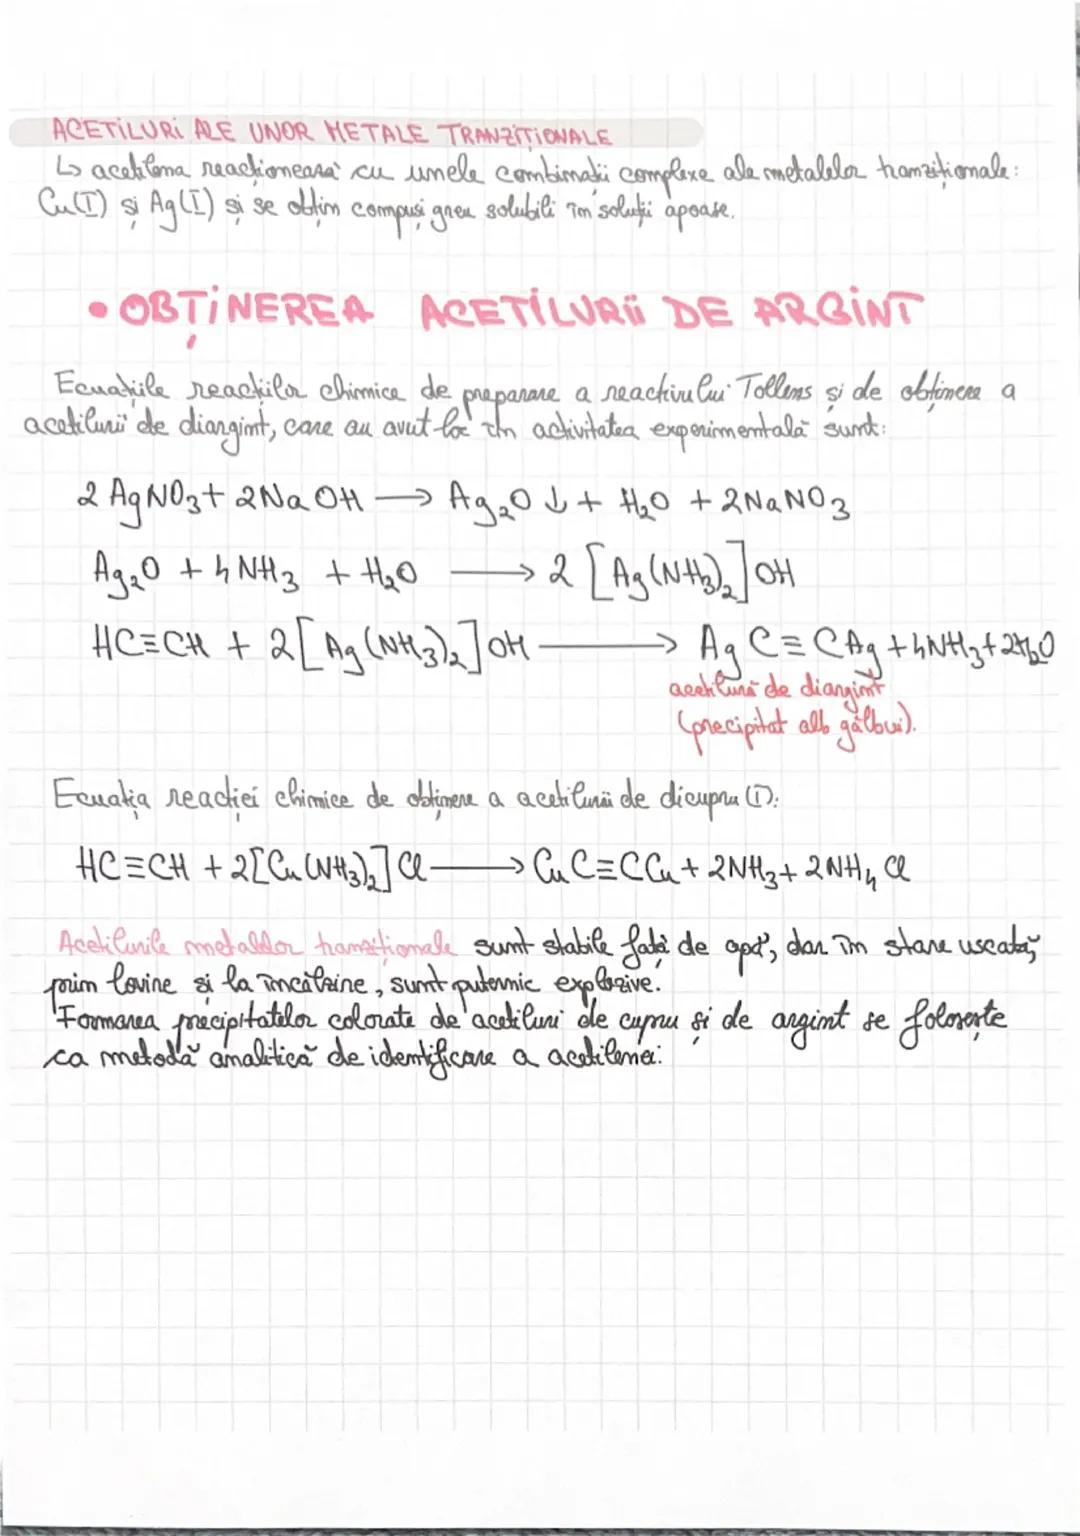 ACETILURI ALE UNOR METALE TRANZIȚIONALE
↳ acetilena reacționează cu unele combinații complexe ale metalelor tranziționale:
Cu(I) și Ag(I) și se obțin compuși greu solubili în soluții apoase.
• OBȚINEREA ACETILURII DE ARGINT
Ecuațiile reacțiilor chimice de preparare a reactivului Tollens și de obținere a
acetilurii de diargint, care au avut loc în activitatea experimentală sunt:
2 AgNO₃ + 2NaOH → Ag₂O ↓ + H₂O + 2NaNO₃
Ag₂O + 4 NH₃ + H₂O → 2 [Ag(NH₃)₂]OH
HC≡CH + 2[Ag(NH₃)₂]OH → AgC≡CAg + 4NH₃ + 2H₂O
acetilură de diargint
(precipitat alb gălbui).
Ecuația reacției chimice de obținere a acetilurii de dicupru (I):
HC≡CH + 2[Cu(NH₃)₂]Cl → CuC≡CCu + 2NH₃ + 2NH₄Cl
Acetilurile metalelor tranziționale sunt stabile față de apă, dar în stare uscată,
prin lovire și la încălzire, sunt puternic explozive.
Formarea precipitatelor colorate de acetiluri de cupru și de argint se folosește
ca metodă analitică de identificare a acetilenei: